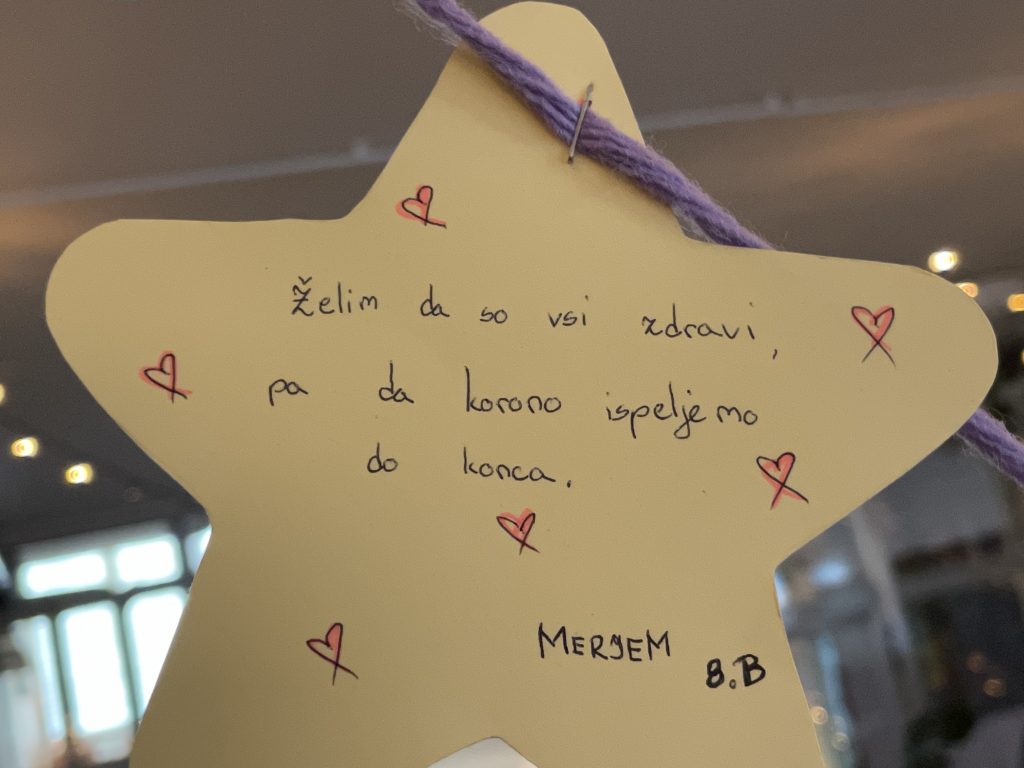 Želim da so vsi zdravi,
pa da korono ispeljemo
do konca.
MERJEM
8.B